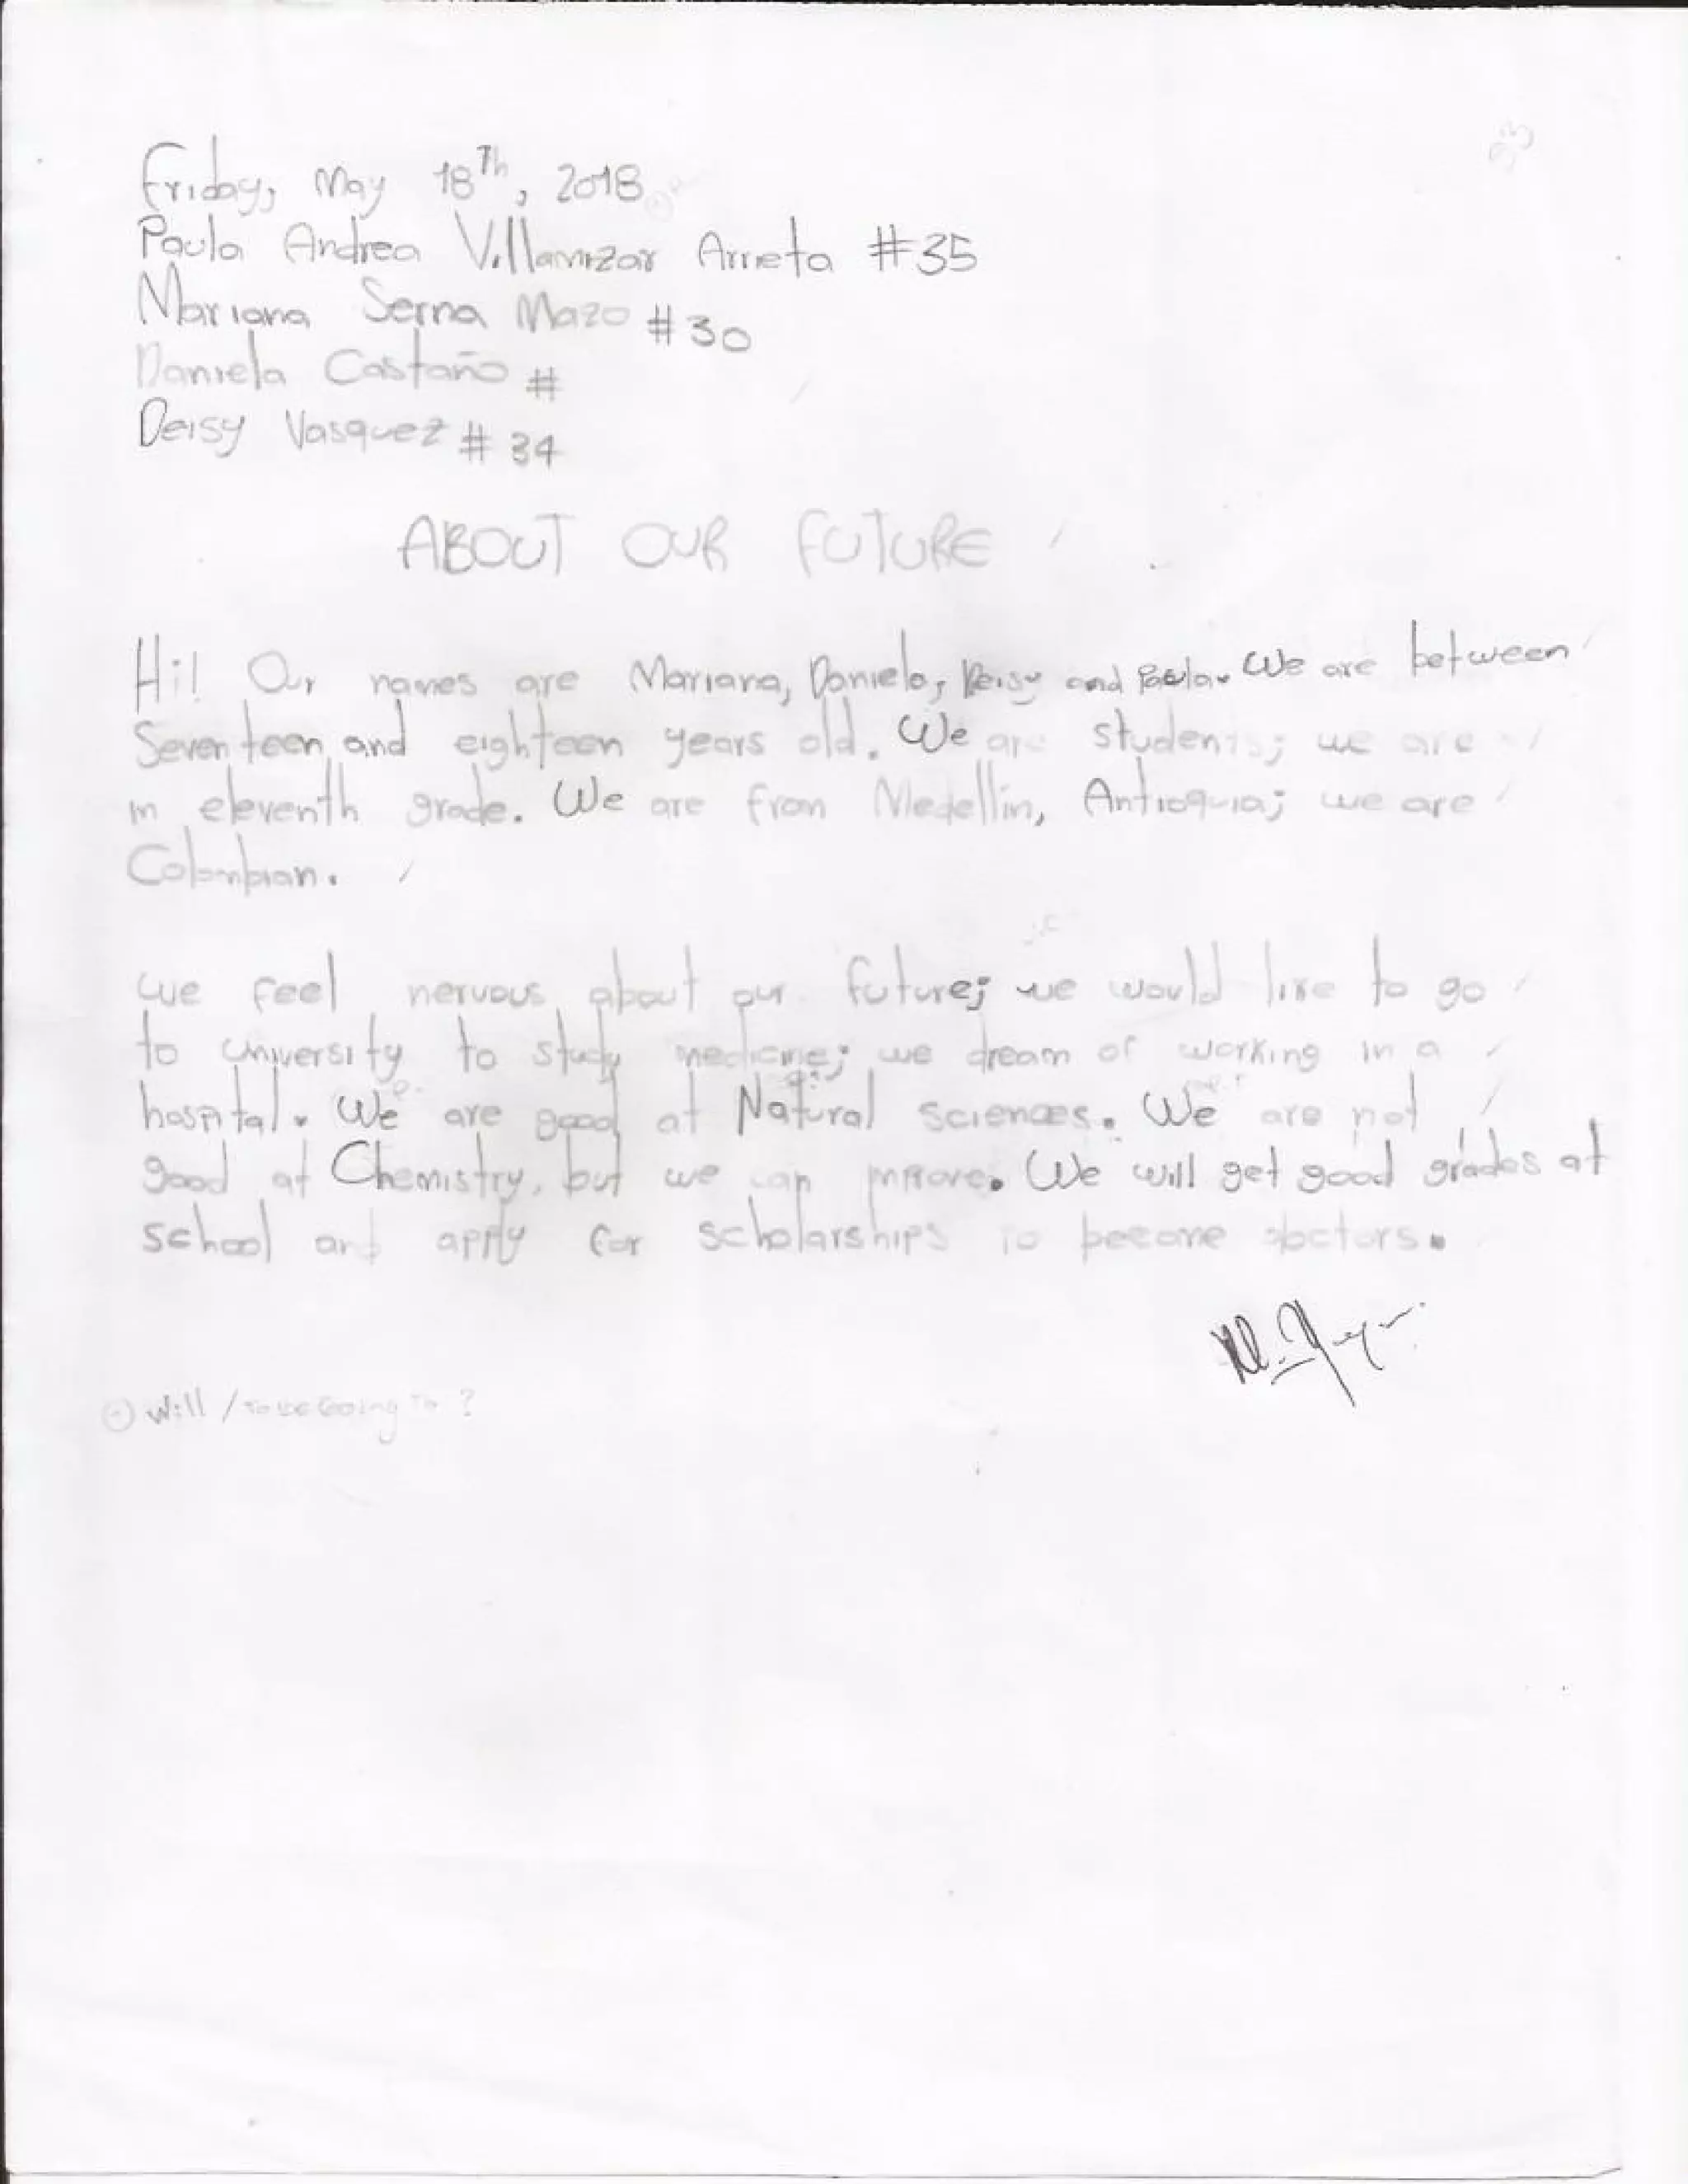 Friday, May 18Th, 2018
Paula Andrea Villamizar Arrieta #35
Mariana Serna Mazo #30
Daniela Castaño #
Deisy Vasquez #34
ABOUT OUR FUTURE
Hi! Our names are Mariana, Daniela, Deisy and Paula. We are between
Seventeen and eighteen years old. We are students; we are
in eleventh grade. We are from Medellín, Antioquia; we are
Colombian.
We feel nervous about our future; we would like to go
to university to study medicine; we dream of working in a
hospital. We are good at Natural sciences. We are not
good at Chemistry, but we can improve. We will get good grades at
school and apply for scholarships to become doctors.
Will / to be Going To ?